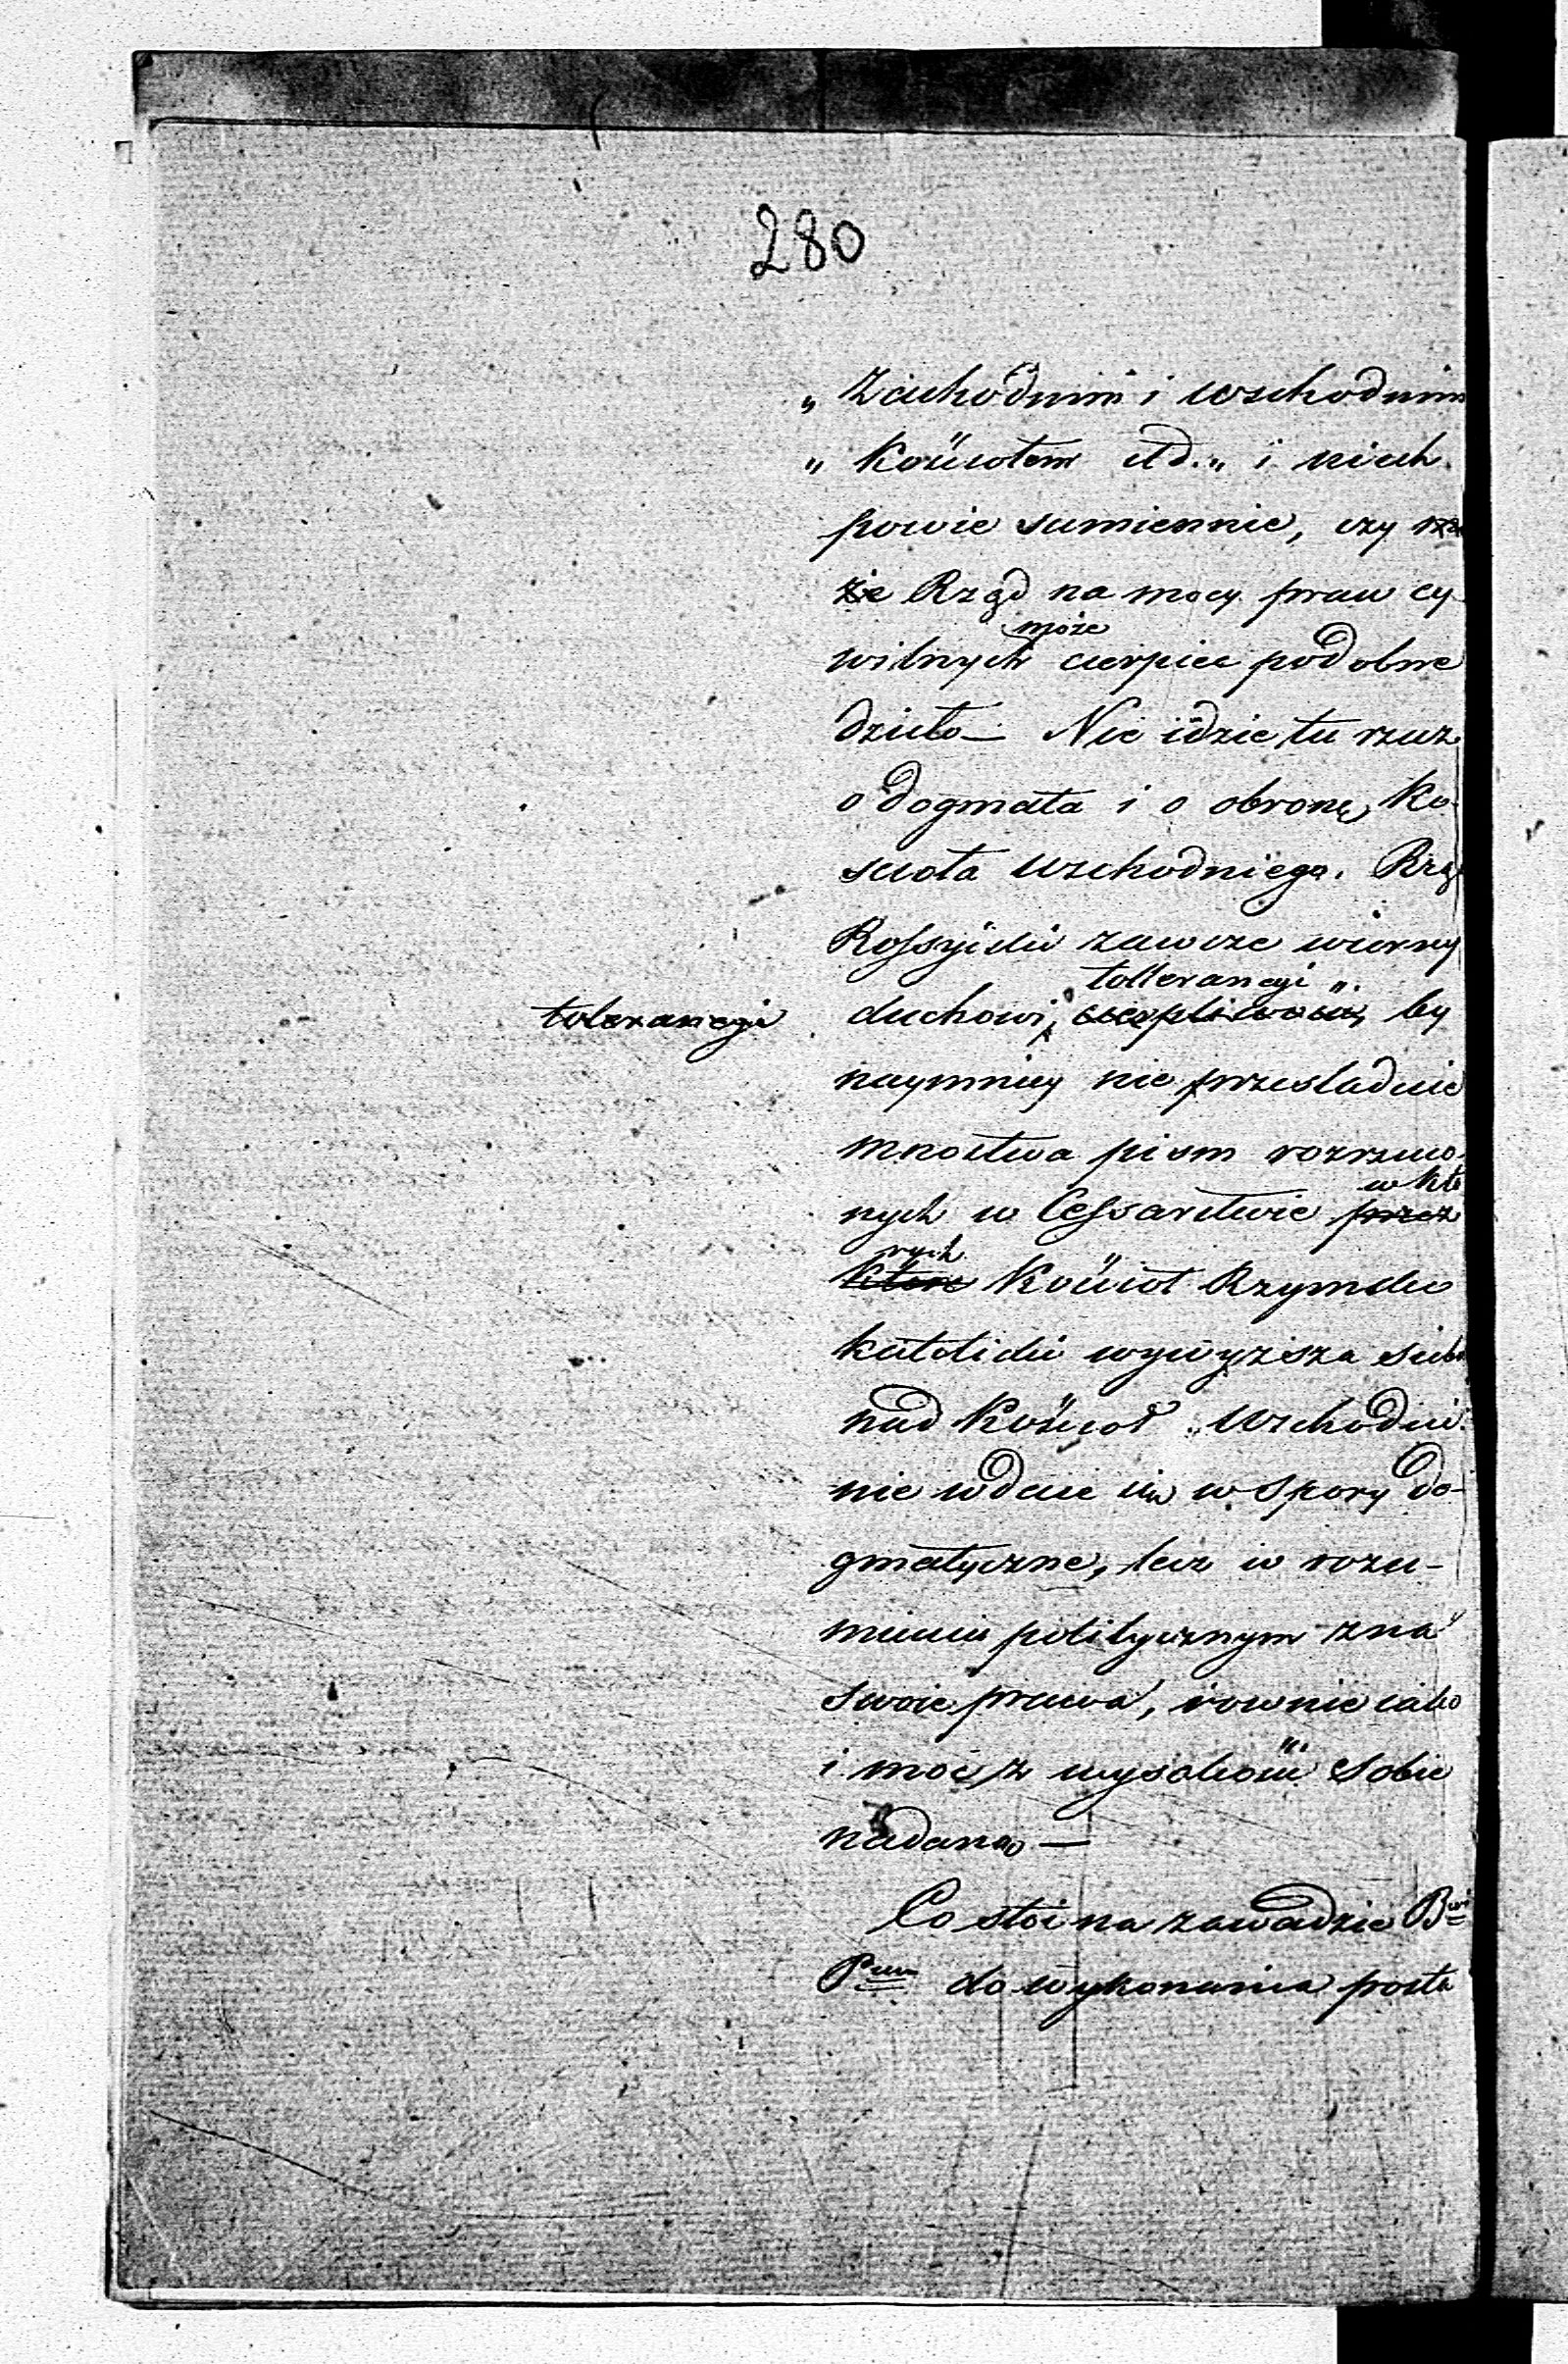 280
„ Zachodnim i wschodnim
„ Kościołem itd. „ i niech
powie sumiennie, czy
że Rząd na mocy praw cy
może
wilnych cierpieć podobne
dzieło — Nie idzie tu rzecz
o dogmata i o obronę Ko-
scioła wschodniego. Rzą
Rossyiski zawsze wierny
tollerancyi
tolerancyi duchowi, cierpliwości, by
naymniey nie przesladuie
mnostwa pism rozrzuco-
w któ
nych w Cessarstwie przez
rych
które Kościoł Rzymsko
katolicki wywyższa siebie
nad Kościoł Wschodni
nie wdaie się w spory do-
gmatyczne, lecz w rozu-
mieniu politycznym zna
swoie prawa, rownie iako
i moc z wysokości sobie
nadaną —
Co stoi na zawadzie
do wykonania posta